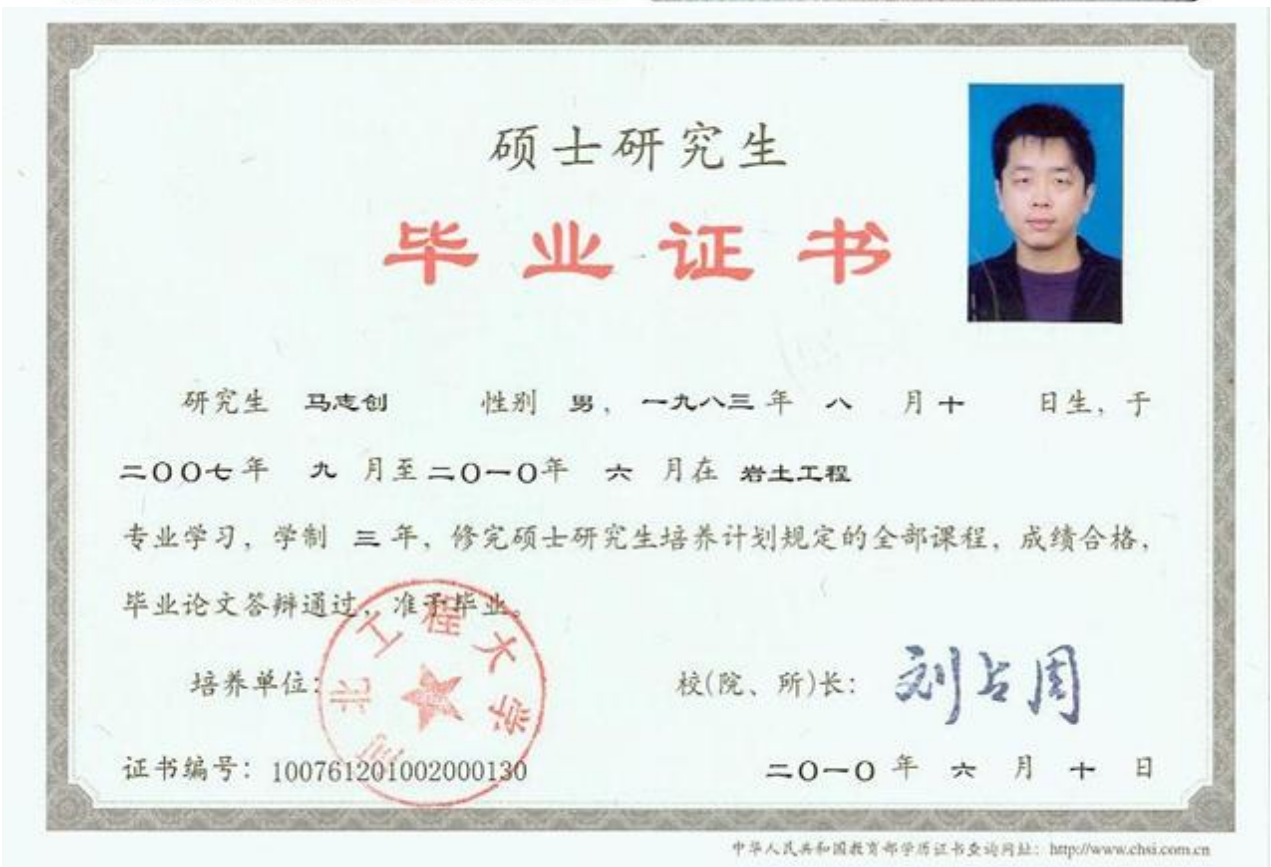 硕士研究生
毕业证书
研究生 马志创 性别 男，一九八三年 八 月十 日生，于
二〇〇七年 九 月至二〇一〇年 六 月在 岩土工程
专业学习，学制 三 年，修完硕士研究生培养计划规定的全部课程，成绩合格，
毕业论文答辩通过，准予毕业。
河北工程大学
培养单位：
校(院、所)长： 刘占周
证书编号：100761201002000130
二〇一〇 年 六 月 十 日
中华人民共和国教育部学历证书查询网址：http://www.chsi.com.cn